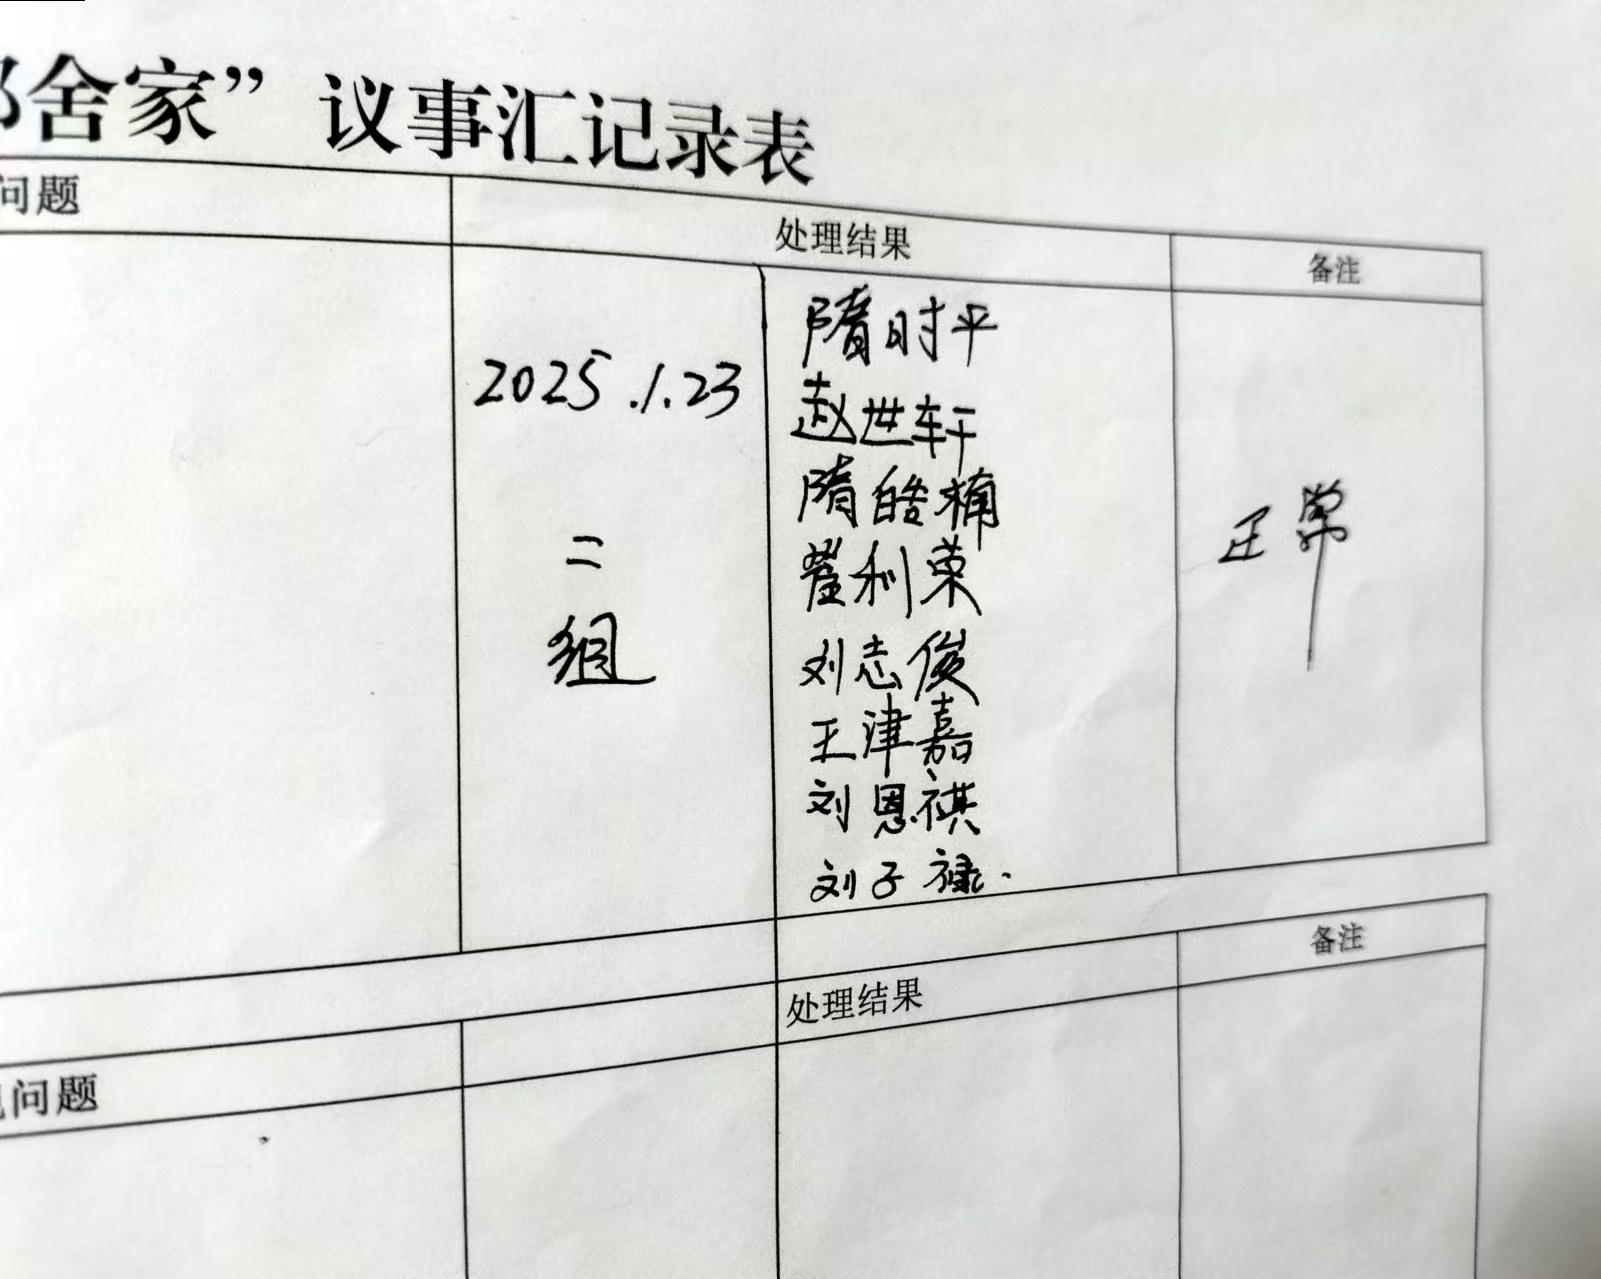 舍家”议事汇记录表
问题
处理结果
备注
2025.1.23
二
组
隋时平
赵世轩
隋皓楠
翟利荣
刘志俊
王津嘉
刘恩祺
刘子禄.
正常
备注
处理结果
问题